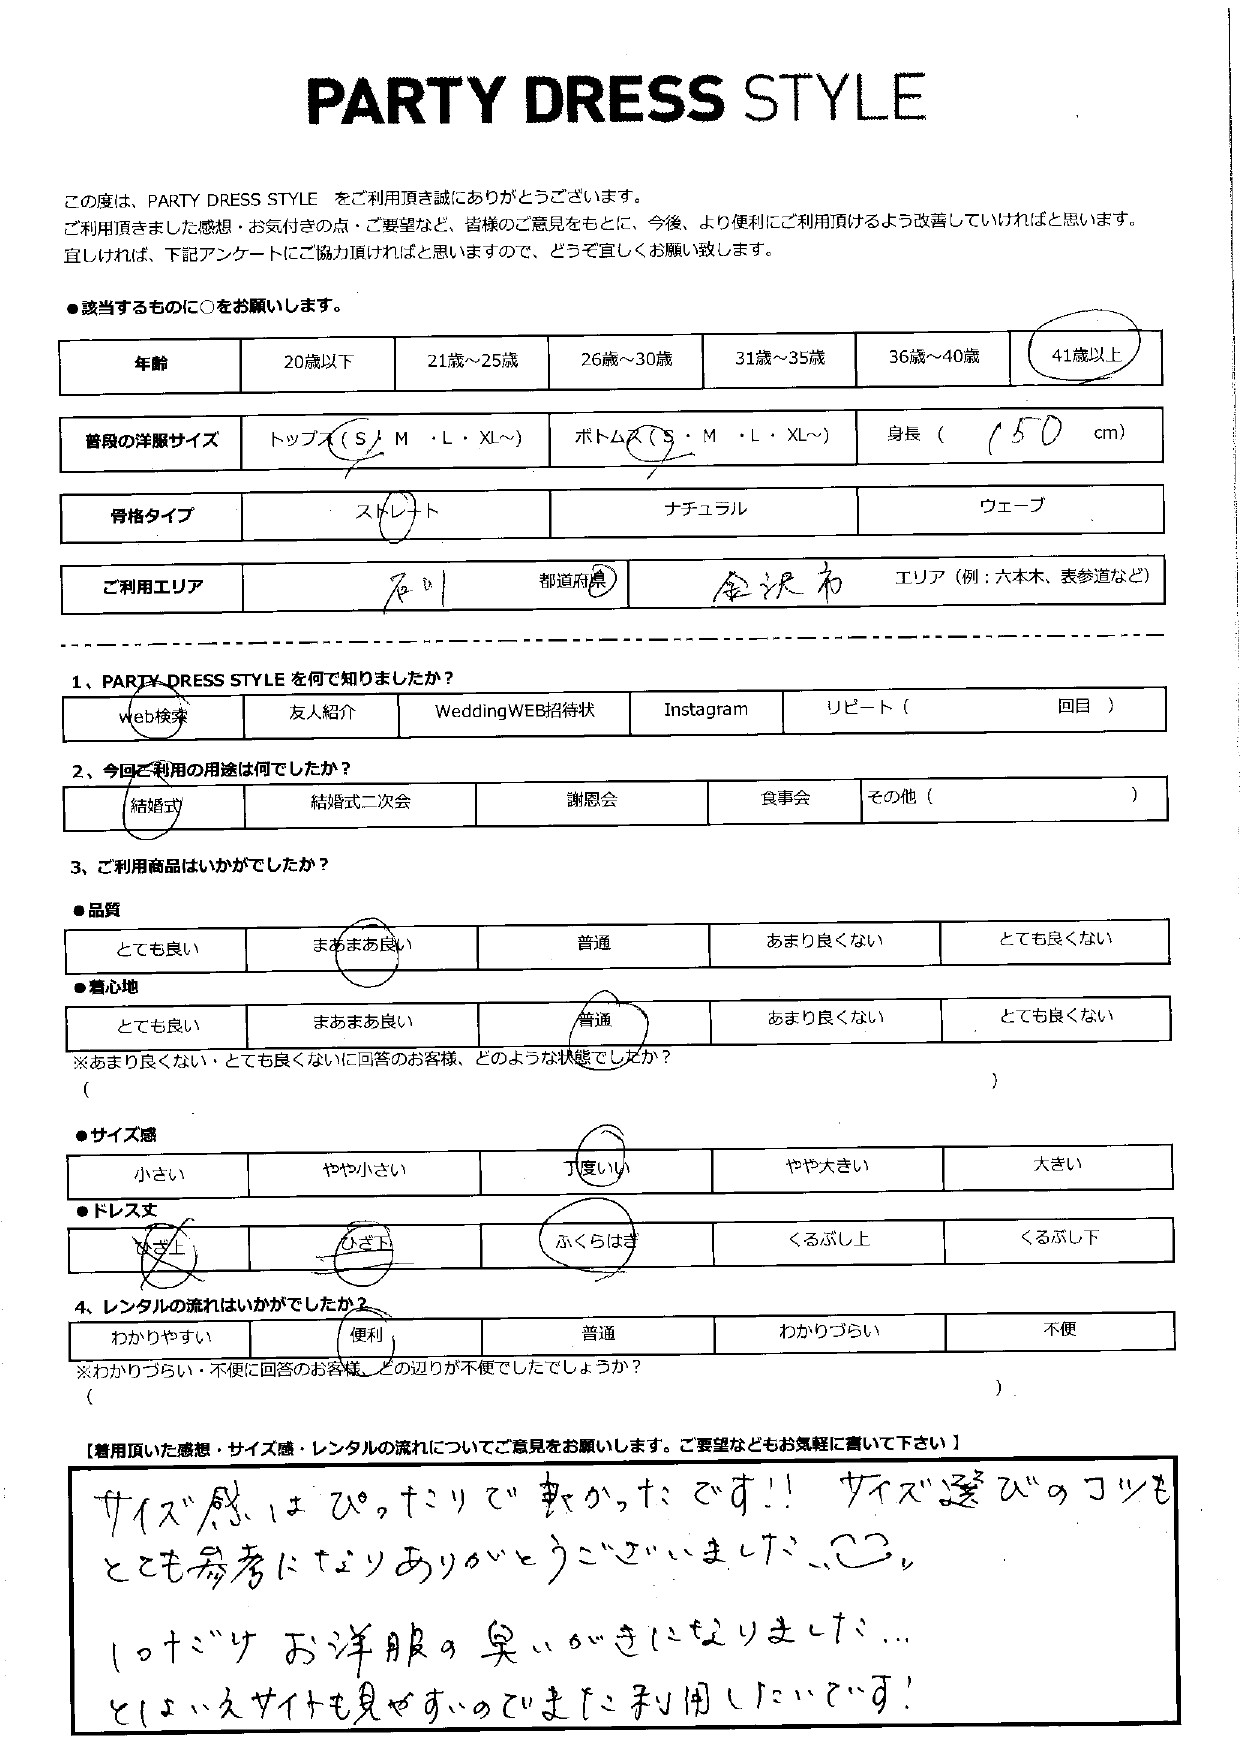 PARTY DRESS STYLE
この度は、PARTY DRESS STYLE をご利用頂き誠にありがとうございます。
ご利用頂きました感想・お気付きの点・ご要望など、皆様のご意見をもとに、今後、より便利にご利用頂けるよう改善していければと思います。
宜しければ、下記アンケートにご協力頂ければと思いますので、どうぞ宜しくお願い致します。
●該当するものに○をお願いします。
年齢 20歳以下 21歳～25歳 26歳～30歳 31歳～35歳 36歳～40歳 41歳以上
普段の洋服サイズ トップス（ S ・ M ・L ・ XL～) ボトムス（ S ・ M ・L ・ XL～) 身長 （ 150 cm）
骨格タイプ ストレート ナチュラル ウェーブ
ご利用エリア 石川 都道府県 金沢市 エリア（例：六本木、表参道など）
1、PARTY DRESS STYLE を何で知りましたか？
web検索 友人紹介 WeddingWEB招待状 Instagram リピート（ 回目 ）
2、今回ご利用の用途は何でしたか？
結婚式 結婚式二次会 謝恩会 食事会 その他（ ）
3、ご利用商品はいかがでしたか？
●品質
とても良い まあまあ良い 普通 あまり良くない とても良くない
●着心地
とても良い まあまあ良い 普通 あまり良くない とても良くない
※あまり良くない・とても良くないに回答のお客様、どのような状態でしたか？
（ ）
●サイズ感
小さい やや小さい 丁度いい やや大きい 大きい
●ドレス丈
ひざ上 ひざ下 ふくらはぎ くるぶし上 くるぶし下
4、レンタルの流れはいかがでしたか？
わかりやすい 便利 普通 わかりづらい 不便
※わかりづらい・不便に回答のお客様、どの辺りが不便でしたでしょうか？
（ ）
【着用頂いた感想・サイズ感・レンタルの流れについてご意見をお願いします。ご要望などもお気軽に書いて下さい 】
サイズ感はぴったりで軟かったです!! サイズ選びのコツも
とても参考になりありがとうございました
1つだけ お洋服の臭いがきになりました…
とはいえサイトも見やすいのでまた利用したいです!